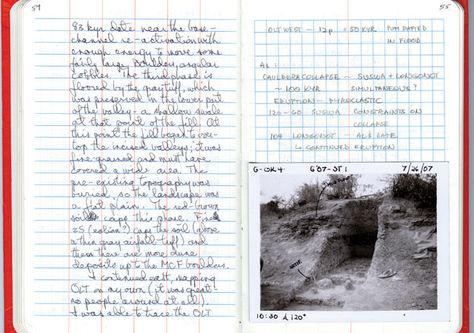 54
83 kyr date near the base -
channel re-activation with
enough energy to move some
fairly large boulders, angular
cobbles. The third phase is
floored by the gray tuff, which
was preserved in the lower part
of the valley - a shallow swale
at that point of the fill. At
this point the fill began to over-
top the incised valleys; it was
fine-grained and must have
covered a wide area. The
pre-existing topography was
buried, so the landscape was
a flat plain. The red-brown
soil caps this phase. Fine
(eolian?) caps the soil (above
a thin gray airfall tuff) and
then there are more
deposits up to the MCF boulders.
I continued east, mapping
OLT on my own (it was great -
no people around at all).
I was able to trace the OLT
55
OLT WEST - 12p = 50 KYR
IN FLOOD
AL:
CALDERA COLLAPSE - SUSUA + LONGONOT
~ 100 KYR SIMULTANEOUS?
ERUPTION - PYROCLASTIC
120-60 SUSUA CONSTRAINTS ON
COLLAPSE
104 LONGONOT - ALS DATE
↳ CONTINUED ERUPTION
G-OR4 G'07-ST1 7/26/07
10:30 ∠ 120°